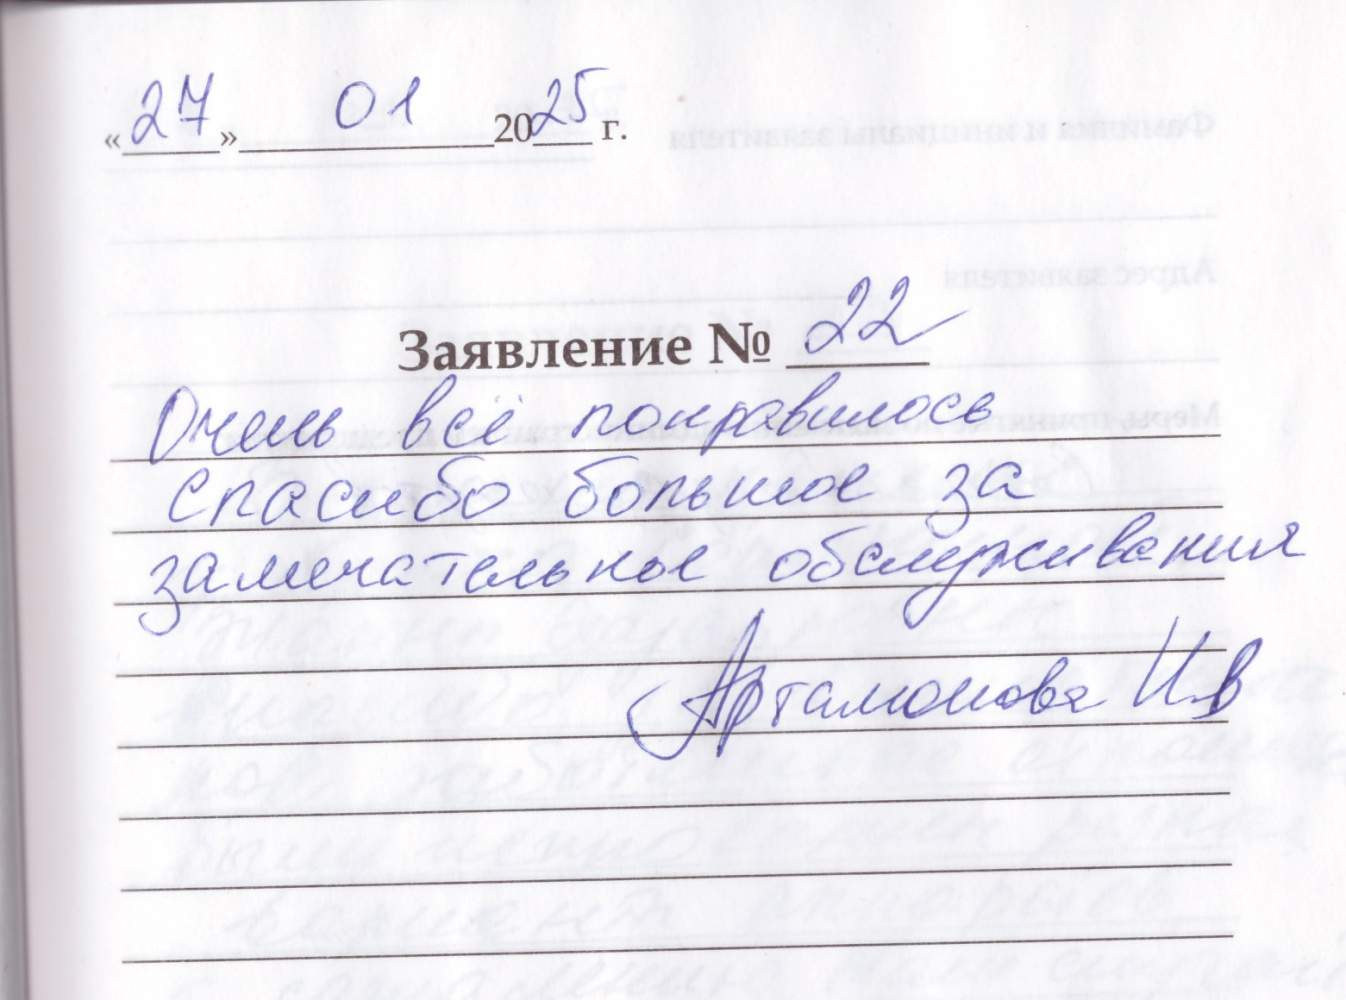 «27» 01 2025 г.
Заявление № 22
Очень всё понравилось
Спасибо большое за
замечательные обслуживания
Артамонова И.В